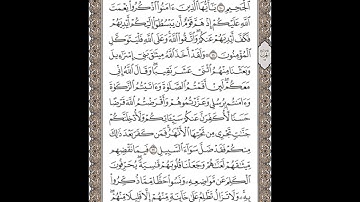 ٱلْجَحِيمِ ۝ يَٰٓأَيُّهَا ٱلَّذِينَ ءَامَنُوا۟ ٱذْكُرُوا۟ نِعْمَتَ
ٱللَّهِ عَلَيْكُمْ إِذْ هَمَّ قَوْمٌ أَن يَبْسُطُوٓا۟ إِلَيْكُمْ أَيْدِيَهُمْ
فَكَفَّ أَيْدِيَهُمْ عَنكُمْ ۖ وَٱتَّقُوا۟ ٱللَّهَ ۚ وَعَلَى ٱللَّهِ فَلْيَتَوَكَّلِ
ٱلْمُؤْمِنُونَ ۝ وَلَقَدْ أَخَذَ ٱللَّهُ مِيثَٰقَ بَنِىٓ إِسْرَٰٓءِيلَ
وَبَعَثْنَا مِنْهُمُ ٱثْنَىْ عَشَرَ نَقِيبًا ۖ وَقَالَ ٱللَّهُ إِنِّى
مَعَكُمْ ۖ لَئِنْ أَقَمْتُمُ ٱلصَّلَوٰةَ وَءَاتَيْتُمُ ٱلزَّكَوٰةَ
وَءَامَنتُم بِرُسُلِى وَعَزَّرْتُمُوهُمْ وَأَقْرَضْتُمُ ٱللَّهَ قَرْضًا
حَسَنًا لَّأُكَفِّرَنَّ عَنكُمْ سَيِّـَٔاتِكُمْ وَلَأُدْخِلَنَّكُمْ
جَنَّٰتٍ تَجْرِى مِن تَحْتِهَا ٱلْأَنْهَٰرُ ۚ فَمَن كَفَرَ بَعْدَ ذَٰلِكَ
مِنكُمْ فَقَدْ ضَلَّ سَوَآءَ ٱلسَّبِيلِ ۝ فَبِمَا نَقْضِهِم
مِّيثَٰقَهُمْ لَعَنَّٰهُمْ وَجَعَلْنَا قُلُوبَهُمْ قَٰسِيَةً ۖ يُحَرِّفُونَ
ٱلْكَلِمَ عَن مَّوَاضِعِهِۦ ۙ وَنَسُوا۟ حَظًّا مِّمَّا ذُكِّرُوا۟
بِهِۦ ۚ وَلَا تَزَالُ تَطَّلِعُ عَلَىٰ خَآئِنَةٍ مِّنْهُمْ إِلَّا قَلِيلًا مِّنْهُمْ ۖ